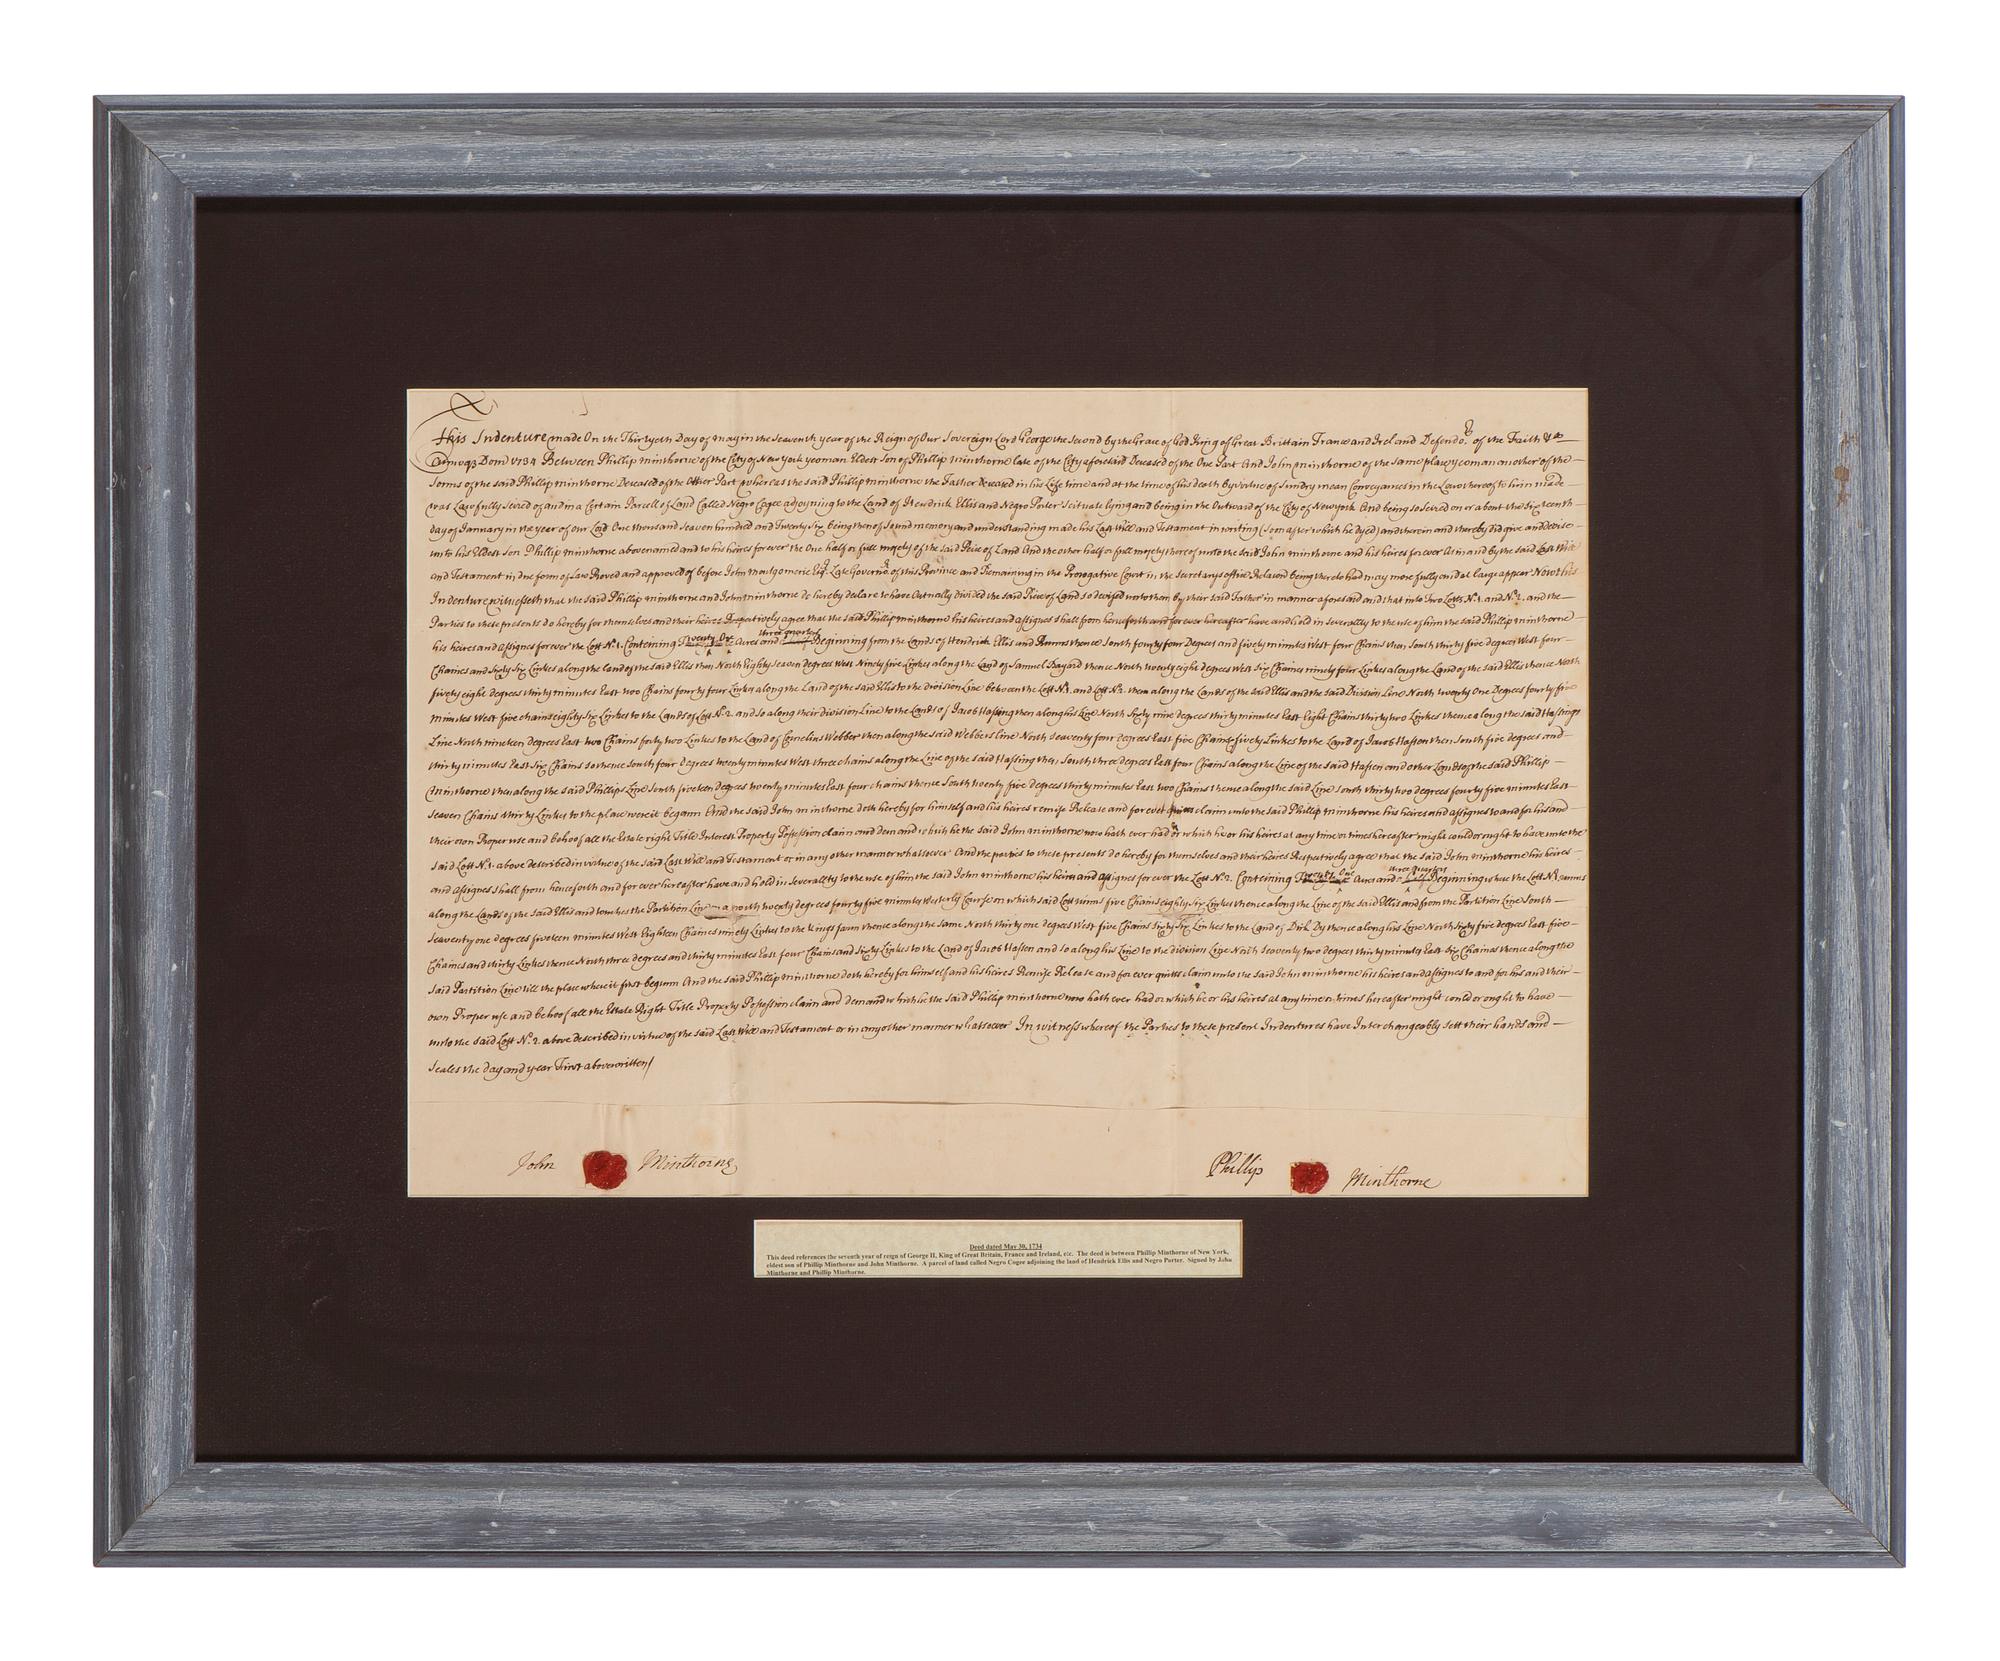 This Indenture made On the Thirtyeth Day of may in the seaventh year of the Reign of Our Sovereign Lord George the Second by the Grace of God King of Great Brittain France and Ireland Defendor of the Faith &c
Annoq Dom 1734 Between Phillip minthorne of the City of New York yeoman Eldest Son of Phillip minthorne late of the City aforesaid Deceased of the One Part And John minthorne of the same place yeoman another of the
Sonns of the said Phillip minthorne Deceased of the Other Part whereas the said Phillip minthorne the Father Deceased in his Life time and at the time of his death by virtue of Sundry mean Conveyances in the Law thereof to him made
was Lawfully Seized of and in a Certain Parcell of Land Called Negro Cogee adjoyning to the Land of Hendrick Ellis and Negro Porter Scituate lying and being in the Outward of the City of New york And being so Seized on or about the sixteenth
day of January in the year of our Lord One thousand seaven hundred and Twenty Six being then of Sound memory and understanding made his Last Will and Testament in writing (soon after which he dyed) and therein and thereby did give and devise
unto his Eldest son Phillip minthorne abovenamed and to his heires for ever the One half or full moyety of the said Peice of Land And the other half or full moyety thereof unto the said John minthorne and his heires for ever As in and by the said Last Will
and Testament in due form of Law Proved and approved of before John montgomerie Esq Late Governor of this Province and Remaining in the Prerogative Court in the Secretarys office Relacon being thereto had may more fully and at large appear Now this
Indenture witnesseth that the said Phillip minthorne and John minthorne do hereby declare to have Actually divided the said Peice of Land so devised unto them by their said Father in manner aforesaid and that into Two Lotts No 1. and No 2. and the
Parties to these presents do hereby for themselves and their heires Respectively agree that the said Phillip minthorne his heires and assignes shall from henceforth and for ever hereafter have and hold in severallty to the use of him the said Phillip minthorne
his heires and assignes for ever the Lott No 1. Conteining Twenty One Acres and three quarters Beginning from the Lands of Hendrick Ellis and Runns thence South fourty four Degrees and fivety minutes West four Chains then South thirty five degrees West four
Chaines and Sixty Six Linkes along the land of the said Ellis then North Eighty seaven degrees West Ninety five Linkes along the Land of Samuel Bayard thence North twenty eight degrees West Six Chaines ninety four Linkes along the Land of the said Ellis thence North
fivety eight degrees thirty minutes East two Chains fourty four Linkes along the Land of the said Ellis to the division Line between the Lott No 1. and Lott No 2. then along the Lands of the said Ellis and the said Division Line North twenty One Degrees fourty five
minutes West five chains eighty Six Linkes to the Lands of Lott No 2. and so along their division Line to the Lands of Jacob Hassing then along his Line North Sixty nine degrees thirty minutes East Eight Chains thirty two Linkes thence along the said Hassings
Line North nineteen degrees East two Chains forty two Linkes to the Land of Cornelius Webber then along the said Webbers Line North seaventy four degrees East five Chains fivety Linkes to the Land of Jacob Hassen then South five degrees and
thirty minutes East Six Chains so thence South four degrees twenty minutes West three chains along the Line of the said Hassing then South three degrees East four Chains along the Line of the said Hassen and other Lands of the said Phillip
minthorne then along the said Phillips Line South fiveteen degrees twenty minutes East four chains thence South twenty five degrees thirty minutes East two Chains thence along the said Line South thirty two degrees fourty five minutes East
seaven Chains thirty Linkes to the place were it began And the said John minthorne doth hereby for himself and his heires remise Release and for ever quitt claim unto the said Phillip minthorne his heires and assignes to and for his and
their own Proper use and behoof all the Estate right Title Interest Property Possession claim and demand which he the said John minthorne now hath ever had or which he or his heires at any time or times hereafter might could or ought to have unto the
said Lott No 1. above described in virtue of the said Last Will and Testament or in any other manner whatsoever And the parties to these presents do hereby for themselves and their heires Respectively agree that the said John minthorne his heires
and assignes shall from henceforth and for ever hereafter have and hold in severallty to the use of him the said John minthorne his heires and assignes for ever the Lott No 2. Conteining Twenty One Acres and three quarters Beginning where the Lott No 1. runns
along the Lands of the said Ellis and touches the Partition Line on a north twenty degrees fourty five minutes westerly Course on which said Lott runns five Chains eighty Six Linkes thence along the Line of the said Ellis and from the Partition Line South
seaventy one degrees fiveteen minutes West Eighteen Chaines ninety Linkes to the Kings farm thence along the same North thirty one degrees West five Chains Sixty Six Linkes to the Land of Dirk Dy thence along his Line North Sixty five degrees East five
Chaines and thirty Linkes thence North three degrees and thirty minutes East four Chains and Sixty Linkes to the Land of Jacob Hassen and so along his Line to the division Line North seaventy two degrees thirty minutes East Six Chaines thence along the
said Partition Line till the place where it first begunn And the said Phillip minthorne doth hereby for himself and his heires Remise Release and for ever quitt claim unto the said John minthorne his heires and assignes to and for his and their
own Proper use and behoof all the Estate Right Title Property Possession claim and demand which he the said Phillip minthorne now hath ever had or which he or his heires at any time or times hereafter might could or ought to have
unto the said Lott No 2. above described in virtue of the said Last Will and Testament or in any other manner whatsoever In witness whereof the Parties to these present Indentures have Interchangeably sett their hands and
seales the day and year First abovewritten/
John Minthorne Phillip Minthorne
Deed dated May 30, 1734
This deed references the seventh year of reign of George II, King of Great Britain, France and Ireland, etc. The deed is between Phillip Minthorne of New York,
eldest son of Phillip Minthorne and John Minthorne. A parcel of land called Negro Cogee adjoining the land of Hendrick Ellis and Negro Porter. Signed by John
Minthorne and Phillip Minthorne.